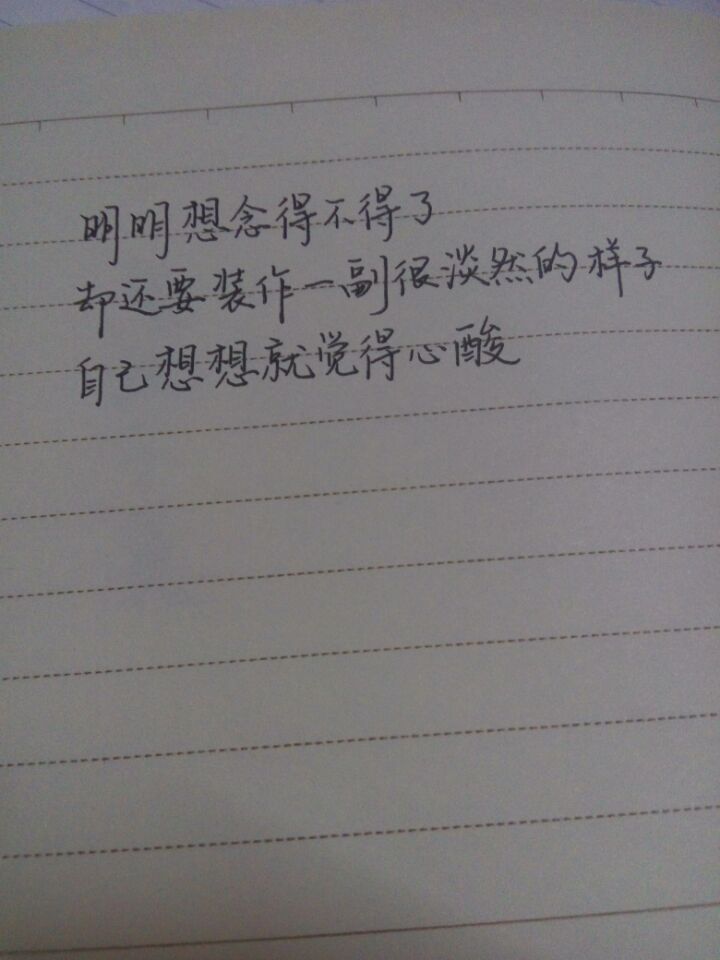 明明想念得不得了
却还要装作一副很淡然的样子
自己想想就觉得心酸